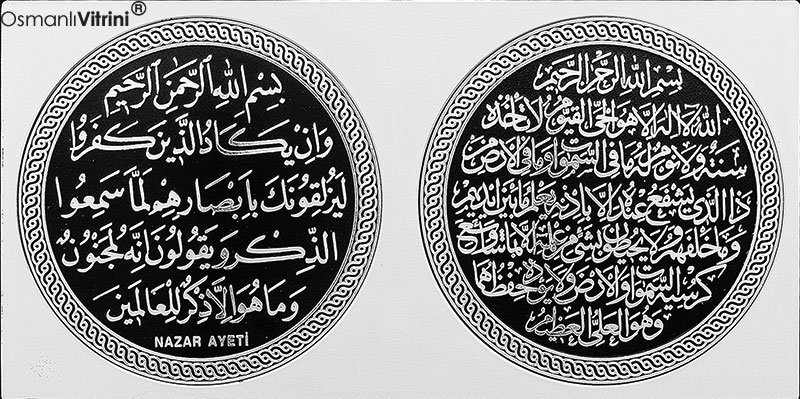 OsmanlıVitrini®
بِسْمِ اللهِ الرَّحْمٰنِ الرَّحِيمِ
وَاِنْ يَكَادُ الَّذِينَ كَفَرُوا
لَيُزْلِقُونَكَ بِاَبْصَارِهِمْ لَمَّا سَمِعُوا
الذِّكْرَ وَيَقُولُونَ اِنَّهُ لَمَجْنُونٌ
وَمَا هُوَ اِلَّا ذِكْرٌ لِلْعَالَمِينَ
NAZAR AYETİ
بسم الله الرحمن الرحيم
الله لا اله الا هو الحي القيوم لا تأخذه
سنة ولا نوم له ما في السموات وما في الارض من
ذا الذي يشفع عنده الا باذنه يعلم ما بين ايديهم
وما خلفهم ولا يحيطون بشئ من علمه الا بما شاء وسع
كرسيه السموات والارض ولا يؤده حفظهما
وهو العلي العظيم